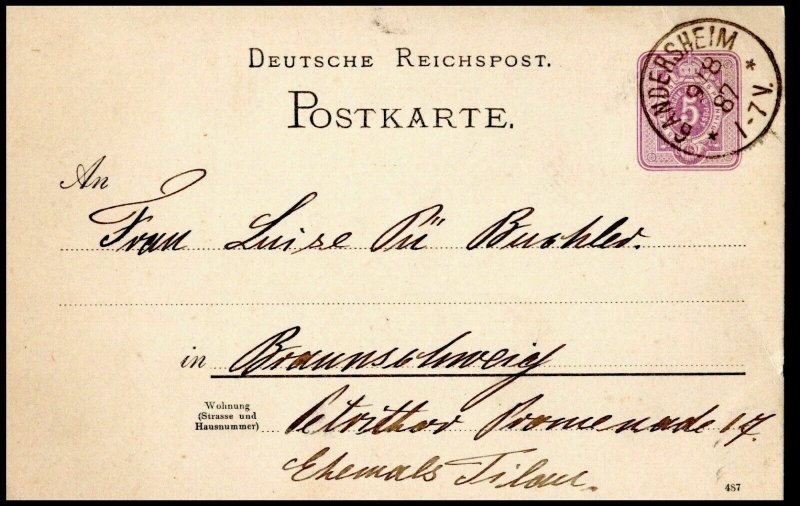 DEUTSCHE REICHSPOST.
POSTKARTE.
GANDERSHEIM
9 8
87
* 1-7 V. *
5
An
Frau Luise Pü Buchler.
in Braunschweig
Wohnung
(Strasse und
Hausnummer)
Petrithor Promenade 17.
Ehemals
487